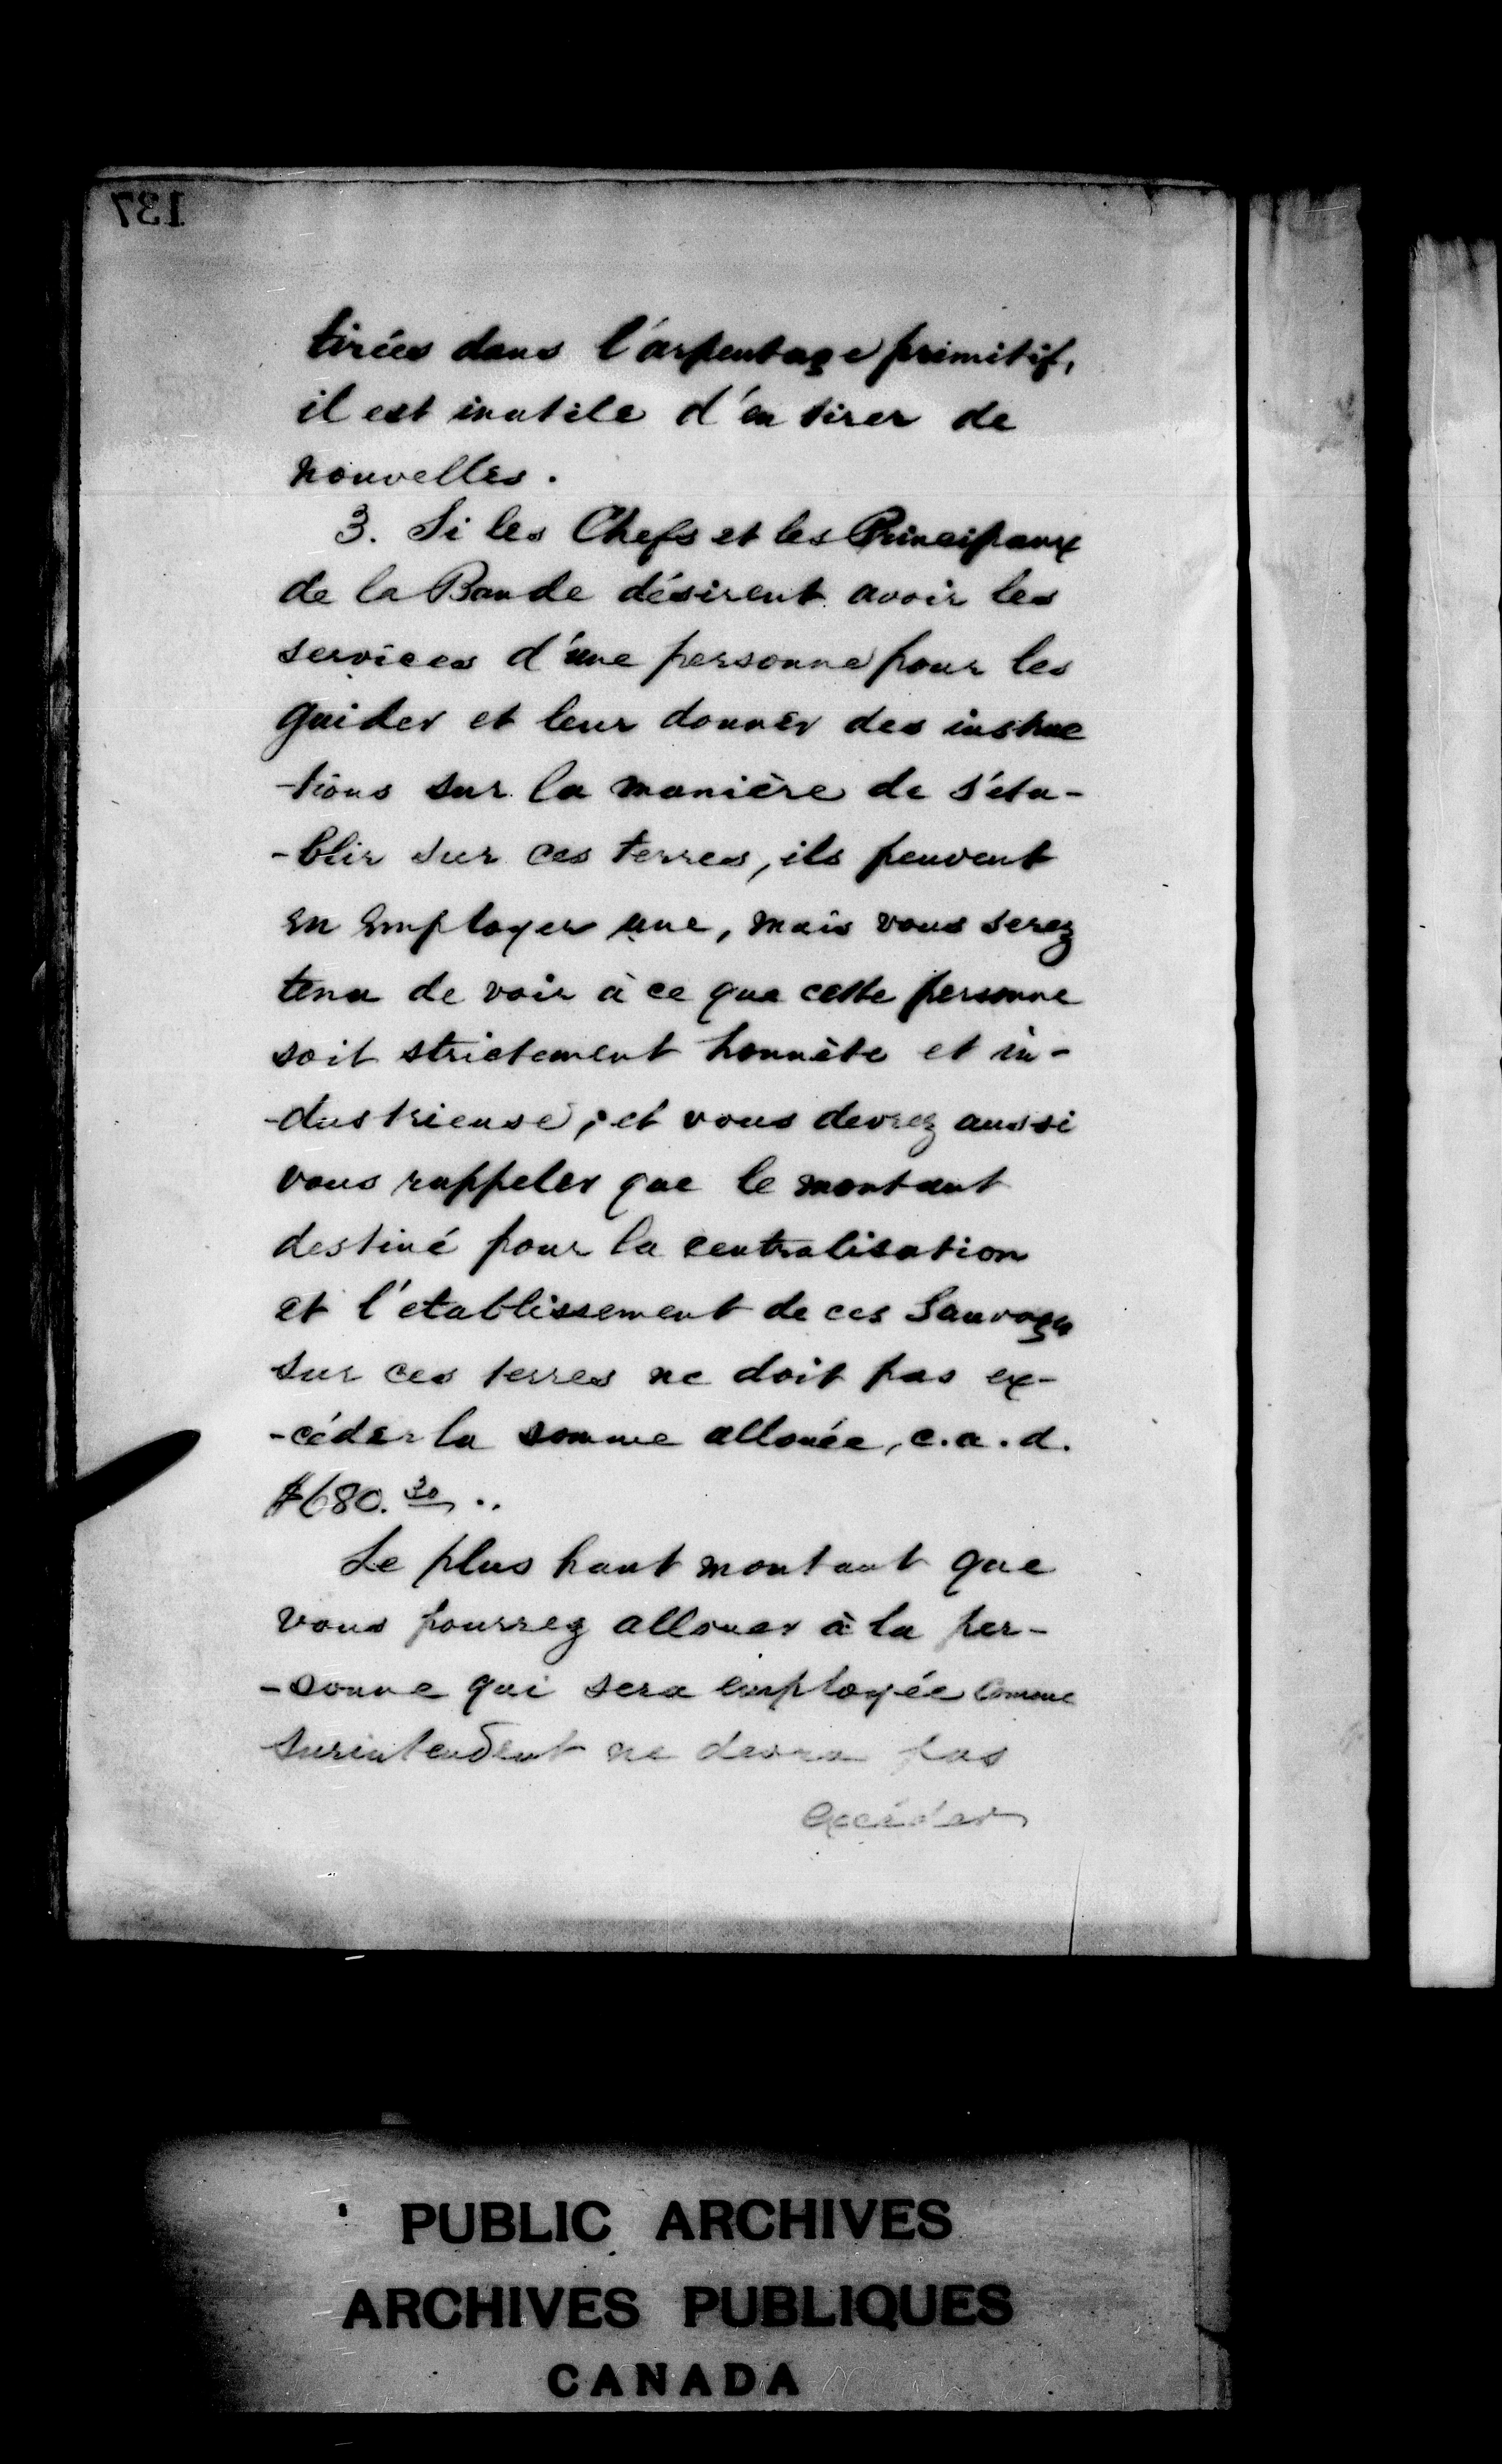 137
tirées dans l'arpentage primitif,
il est inutile d'en tirer de
nouvelles.
3. Si les Chefs et les Principaux
de la Bande désirent avoir les
services d'une personne pour les
guider et leur donner des instruc
-tions sur la manière de s'éta-
-blir sur ces terres, ils peuvent
en employer une, mais vous serez
tenu de voir à ce que cette personne
soit strictement honnète et in-
-dustrieuse; et vous devrez aussi
vous rappeler que le montant
destiné pour la centralisation
et l'etablissement de ces Sauvages
sur ces terres ne doit pas ex-
-céder la somme allouée, c.a.d.
$680.30..
Le plus haut montant que
vous pourrez allouer à la per-
-sonne qui sera employée comme
surintendent ne devra pas
excéder
PUBLIC ARCHIVES
ARCHIVES PUBLIQUES
CANADA